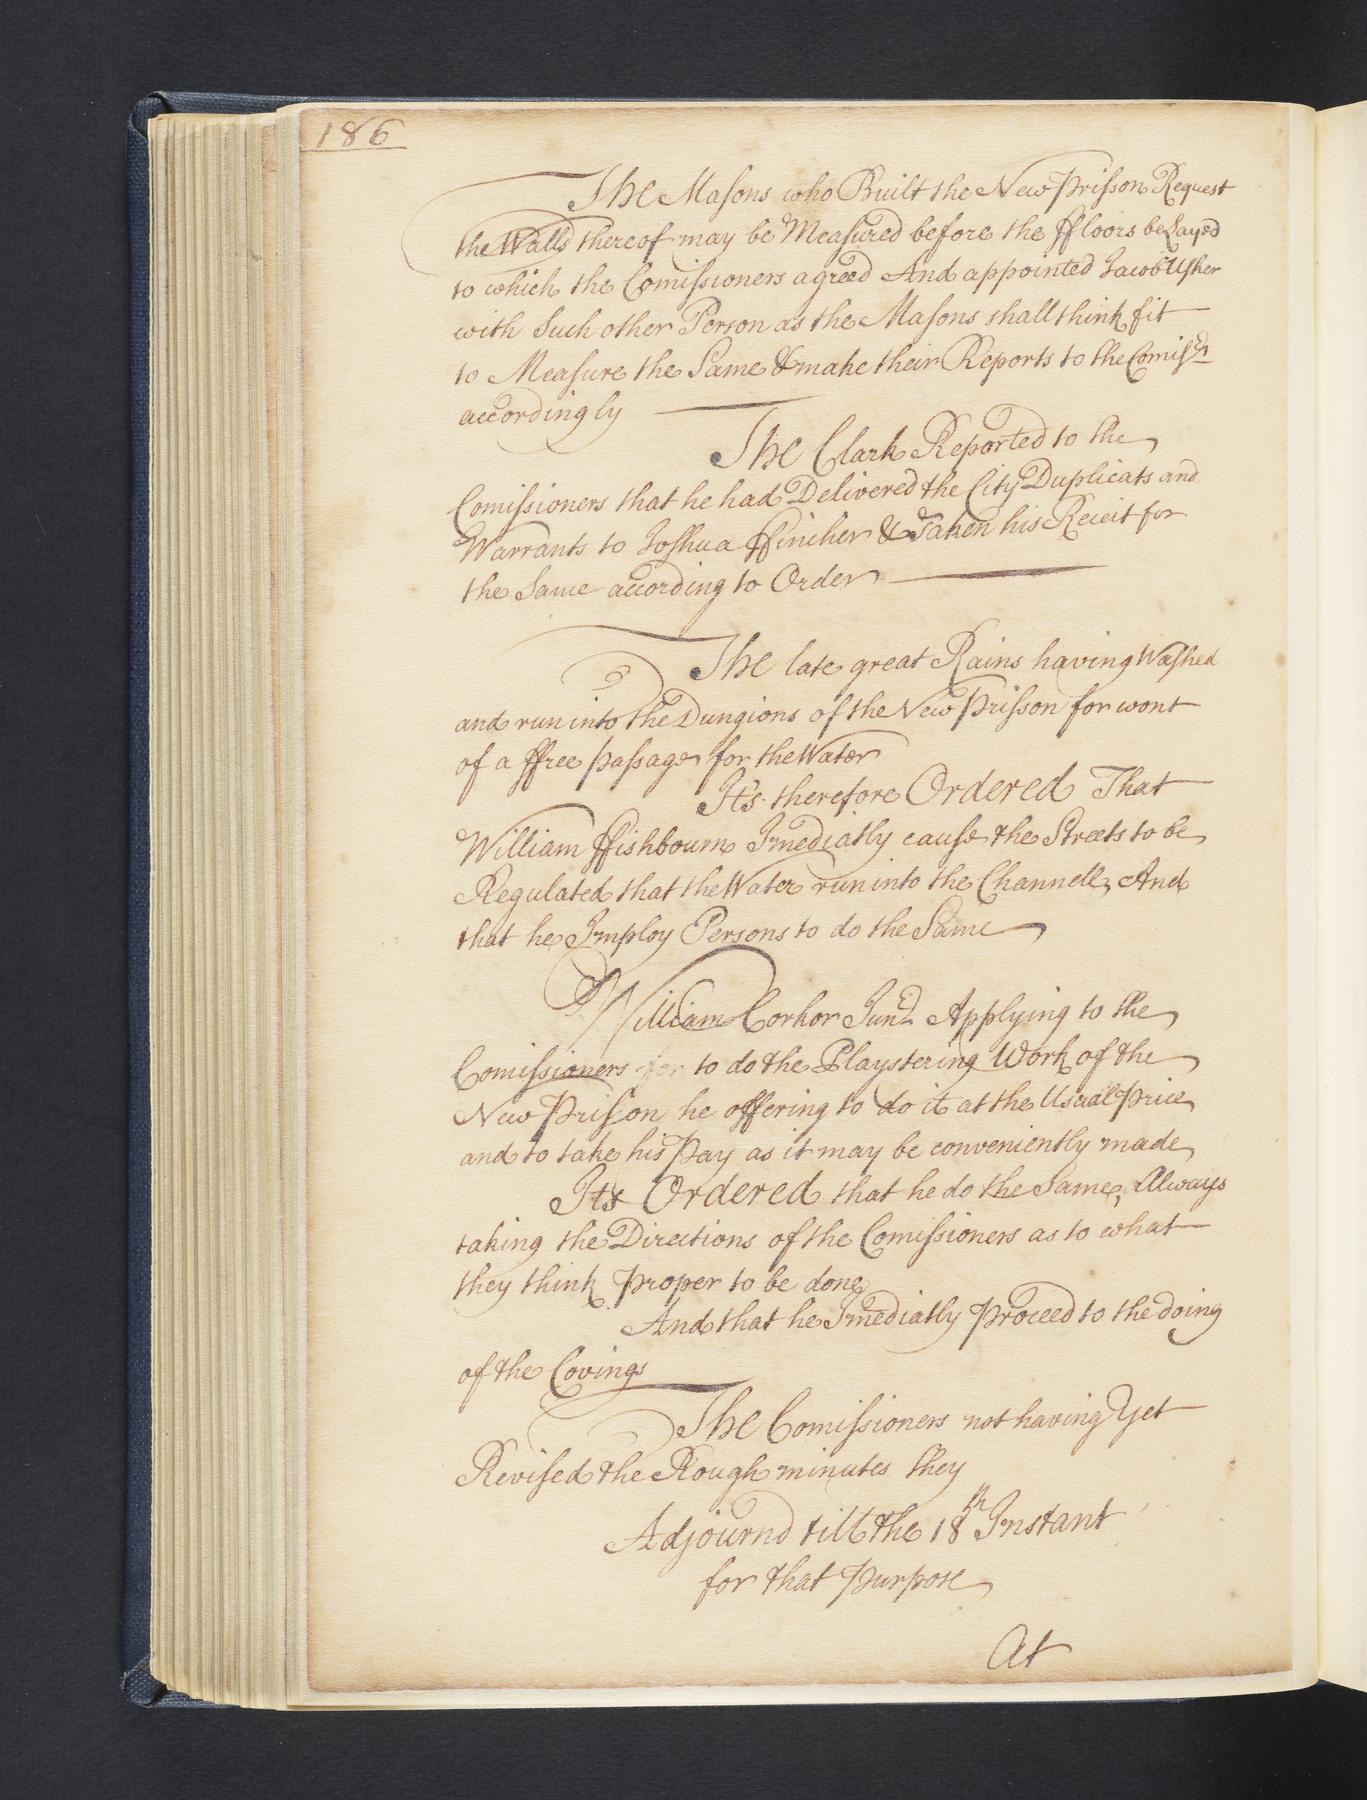 186
The Masons who Built the New Prisson Request
the Walls thereof may be Measured before the ffloors be Layed
to which the Comissioners agreed And appointed Jacob Usher
with Such other Person as the Masons shall think fit
to Measure the Same & make their Reports to the Comissrs
accordingly
The Clark Reported to the
Comissioners that he had Delivered the City Duplicats and
Warrants to Joshua ffincher & Taken his Receit for
the Same according to Order
The late great Rains having Washed
and run into the Dungions of the New Prisson for wont
of a ffree passage for the Water
It's therefore Ordered That
William ffishbourn Imediatly cause the Streets to be
Regulated that the Water run into the Channell, And
that he Imploy Persons to do the Same
William Corkor Junr Applying to the
Comissioners for to do the Playstering Work of the
New Prison he offering to do it at the Usual Price
and to take his Pay as it may be conveniently made
Its Ordered that he do the Same, Always
taking the Directions of the Comissioners as to what
they think proper to be done
And that he Imediatly Proceed to the doing
of the Covings
The Comissioners not having Yet
Revised the Rough minutes they
Adjournd till the 18th Instant
for that Purpose
At